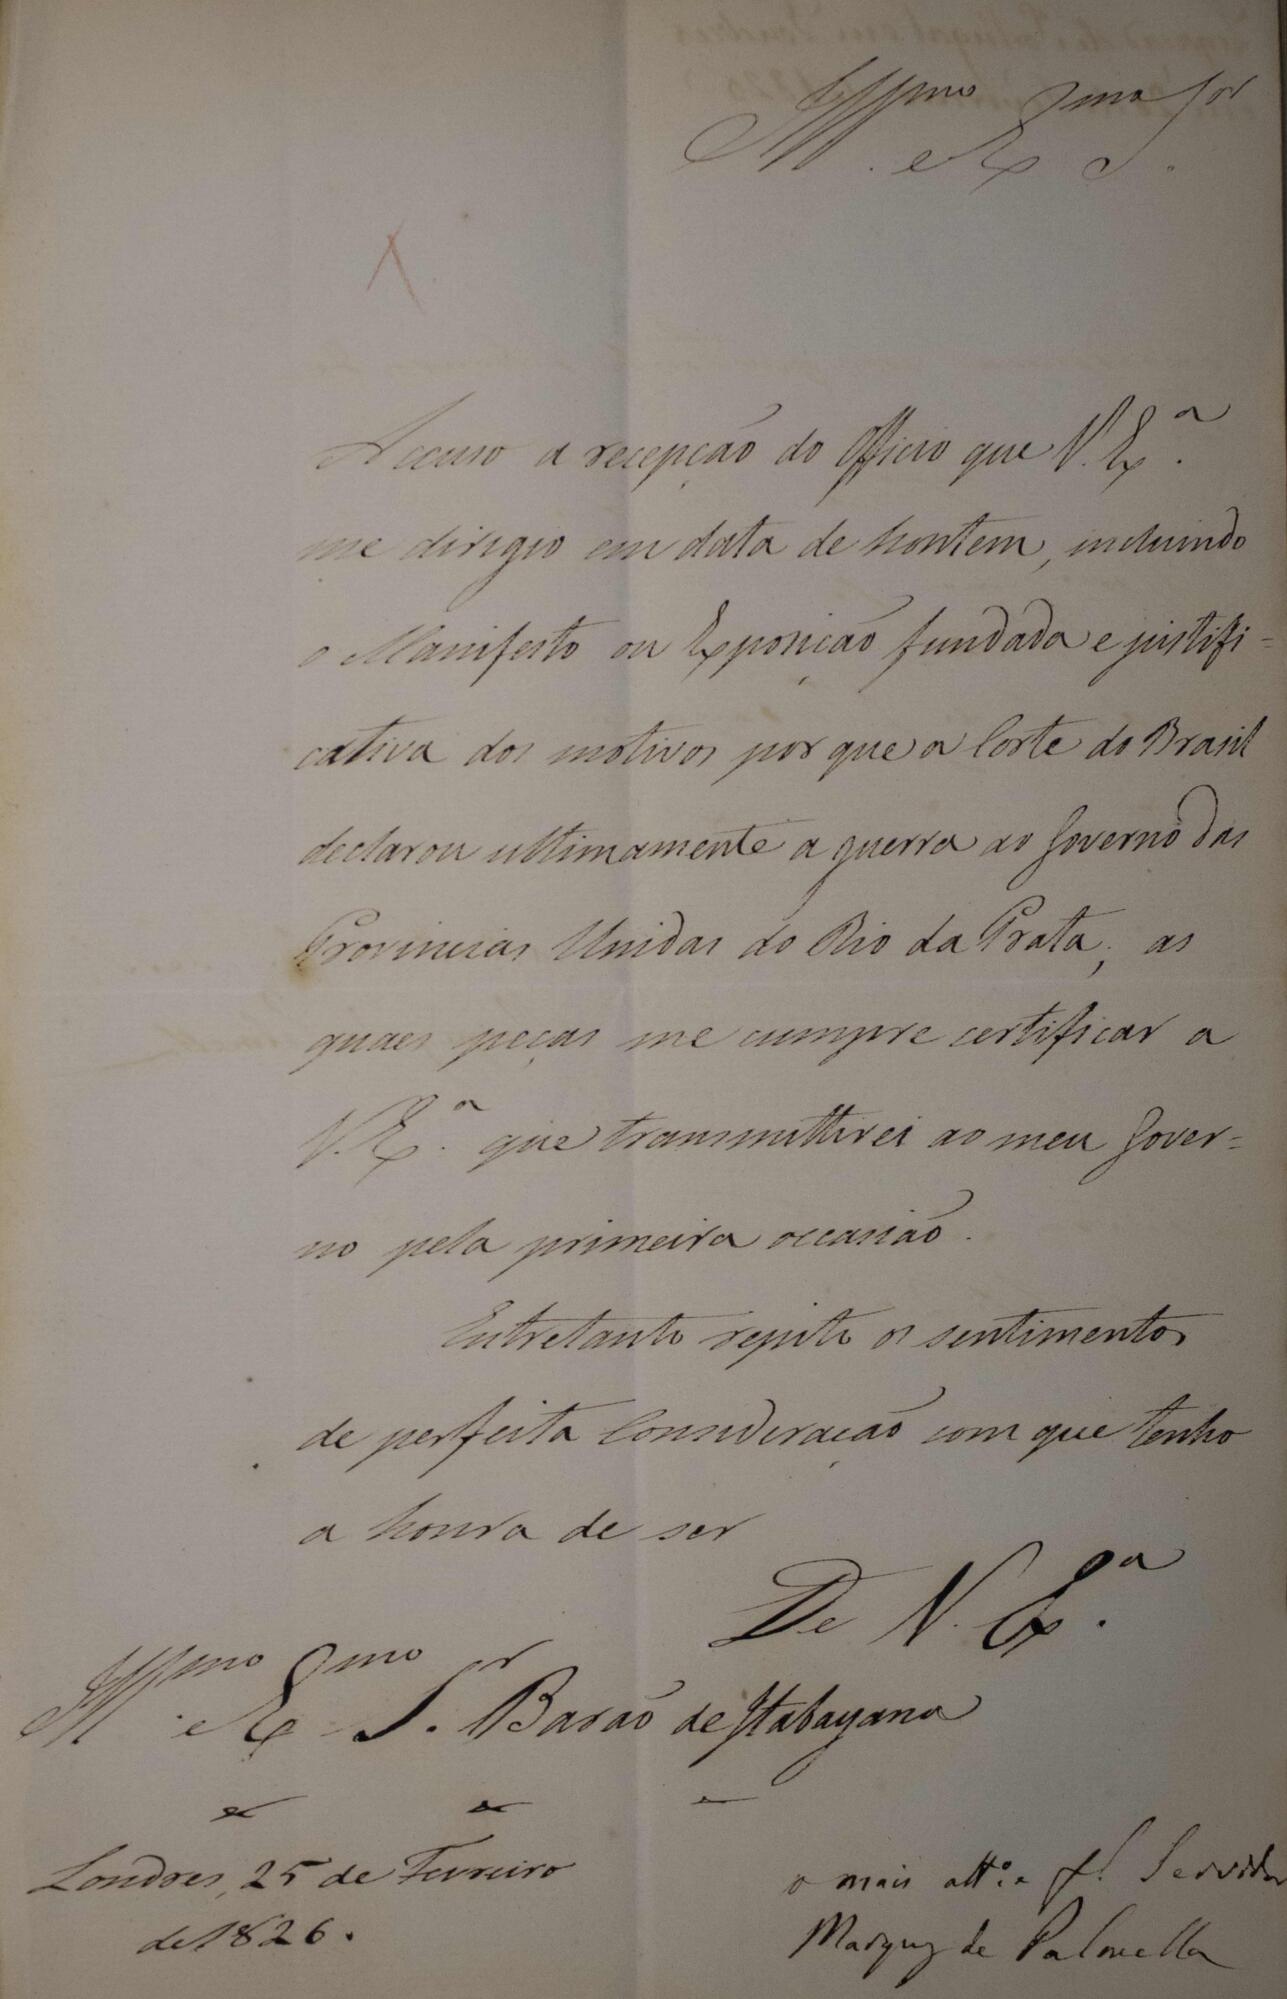 Illmo. e Exmo Sor.
Accuso a recepção do Officio que V. Exa.
me dirigio em data de hontem, incluindo
o Manifesto ou Exposição fundada e justifi-
cativa dos motivos por que a Corte do Brasil
declarou ultimamente a guerra ao Governo das
Provincias Unidas do Rio da Prata; as
quaes peças me cumpre certificar a
V. Exa. que transmittirei ao meu Gover-
no pela primeira occasião.
Entretanto repito os sentimentos
de perfeita Consideração com que tenho
a honra de ser
De V. Exa.
Illmo. e Exmo Sr. Barão de Itabayana
Londres, 25 de Fevreiro
de 1826.
o mais atto. e f. Servidor
Marquez de Palmella